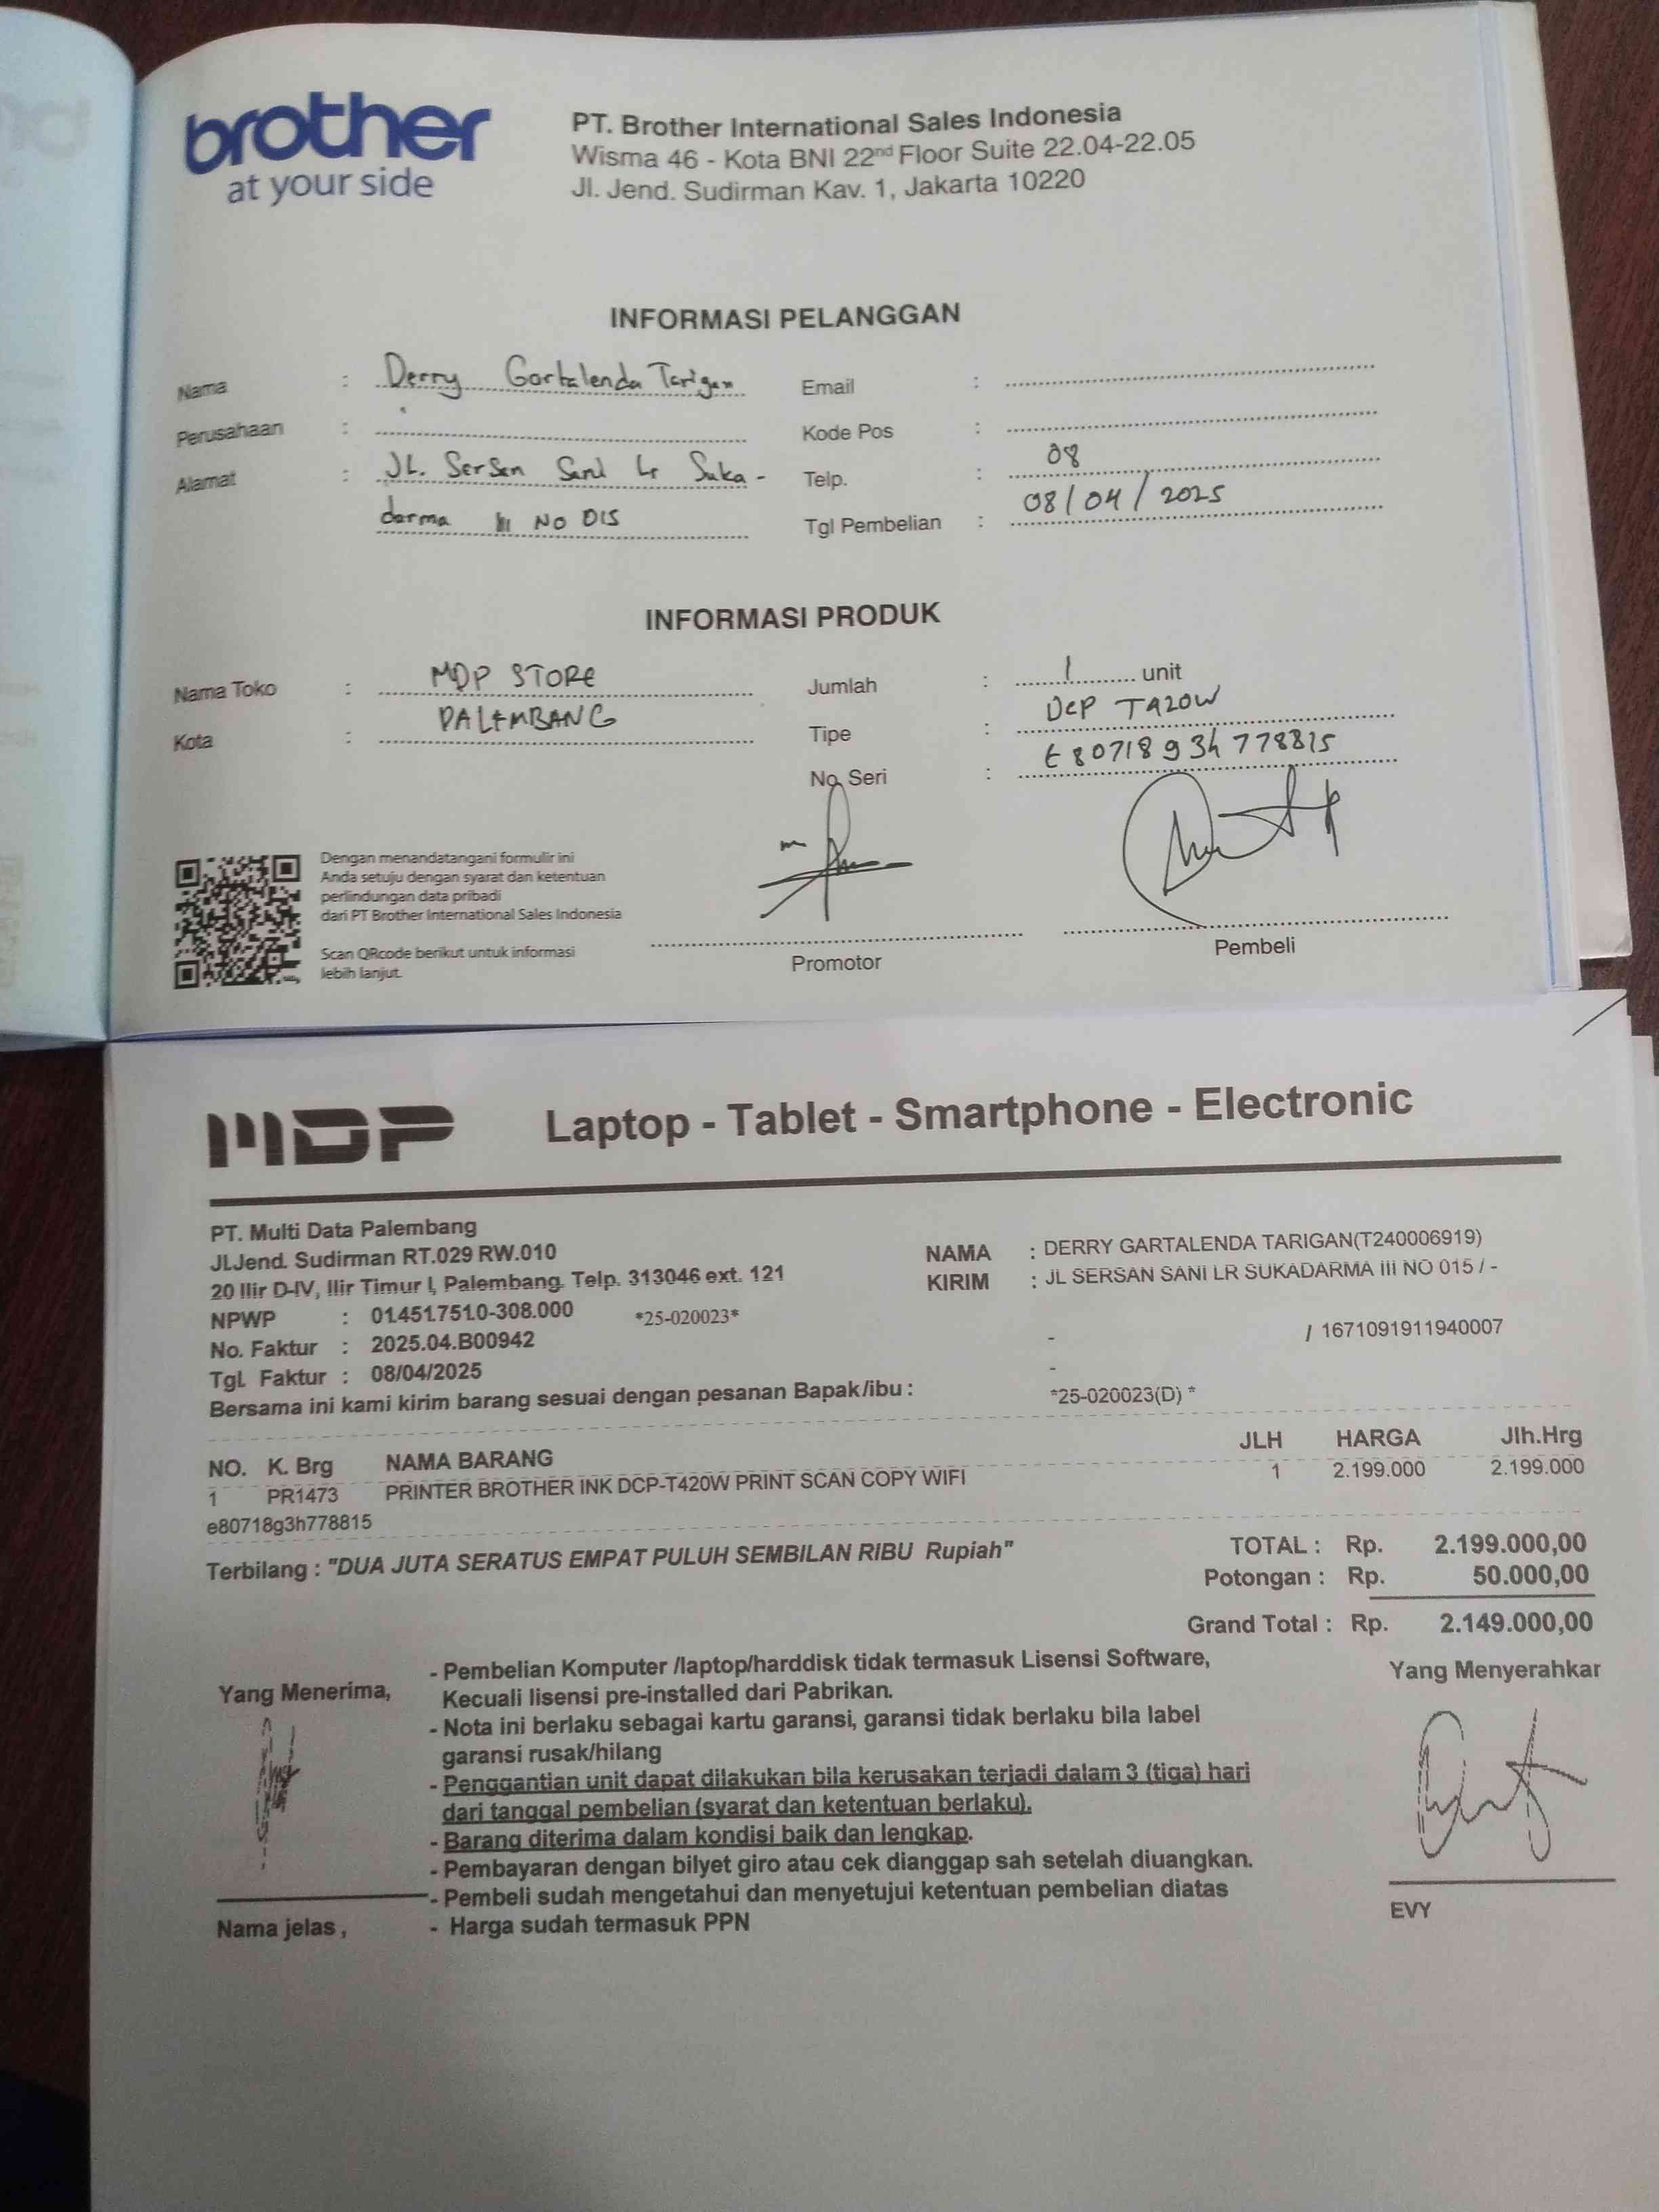 brother
at your side
PT. Brother International Sales Indonesia
Wisma 46 - Kota BNI 22nd Floor Suite 22.04-22.05
Jl. Jend. Sudirman Kav. 1, Jakarta 10220
INFORMASI PELANGGAN
Nama : Derry Gartalenda Tarigan
Perusahaan :
Alamat : JL. Sersan Sani Lr Suka -
darma III NO 015
Email :
Kode Pos :
Telp. : 08
Tgl Pembelian : 08/04/2025
INFORMASI PRODUK
Nama Toko : MDP STORE
Kota : PALEMBANG
Jumlah : 1 unit
Tipe : DCP T420W
No. Seri : E80718g3h778815
Dengan menandatangani formulir ini
Anda setuju dengan syarat dan ketentuan
perlindungan data pribadi
dari PT Brother International Sales Indonesia
Scan QRcode berikut untuk informasi
lebih lanjut.
Promotor
Pembeli
MDP Laptop - Tablet - Smartphone - Electronic
PT. Multi Data Palembang
Jl.Jend. Sudirman RT.029 RW.010
20 Ilir D-IV, Ilir Timur I, Palembang. Telp. 313046 ext. 121
NPWP : 01.451.751.0-308.000 *25-020023*
No. Faktur : 2025.04.B00942
Tgl. Faktur : 08/04/2025
Bersama ini kami kirim barang sesuai dengan pesanan Bapak/ibu :
NAMA : DERRY GARTALENDA TARIGAN(T240006919)
KIRIM : JL SERSAN SANI LR SUKADARMA III NO 015 / -
- / 1671091911940007
-
*25-020023(D) *
NO. K. Brg NAMA BARANG JLH HARGA Jlh.Hrg
1 PR1473 PRINTER BROTHER INK DCP-T420W PRINT SCAN COPY WIFI 1 2.199.000 2.199.000
e80718g3h778815
Terbilang : "DUA JUTA SERATUS EMPAT PULUH SEMBILAN RIBU Rupiah"
TOTAL : Rp. 2.199.000,00
Potongan : Rp. 50.000,00
Grand Total : Rp. 2.149.000,00
Yang Menerima,
- Pembelian Komputer /laptop/harddisk tidak termasuk Lisensi Software,
Kecuali lisensi pre-installed dari Pabrikan.
- Nota ini berlaku sebagai kartu garansi, garansi tidak berlaku bila label
garansi rusak/hilang
- Penggantian unit dapat dilakukan bila kerusakan terjadi dalam 3 (tiga) hari
dari tanggal pembelian (syarat dan ketentuan berlaku).
- Barang diterima dalam kondisi baik dan lengkap.
- Pembayaran dengan bilyet giro atau cek dianggap sah setelah diuangkan.
- Pembeli sudah mengetahui dan menyetujui ketentuan pembelian diatas
- Harga sudah termasuk PPN
Nama jelas ,
Yang Menyerahkar
EVY